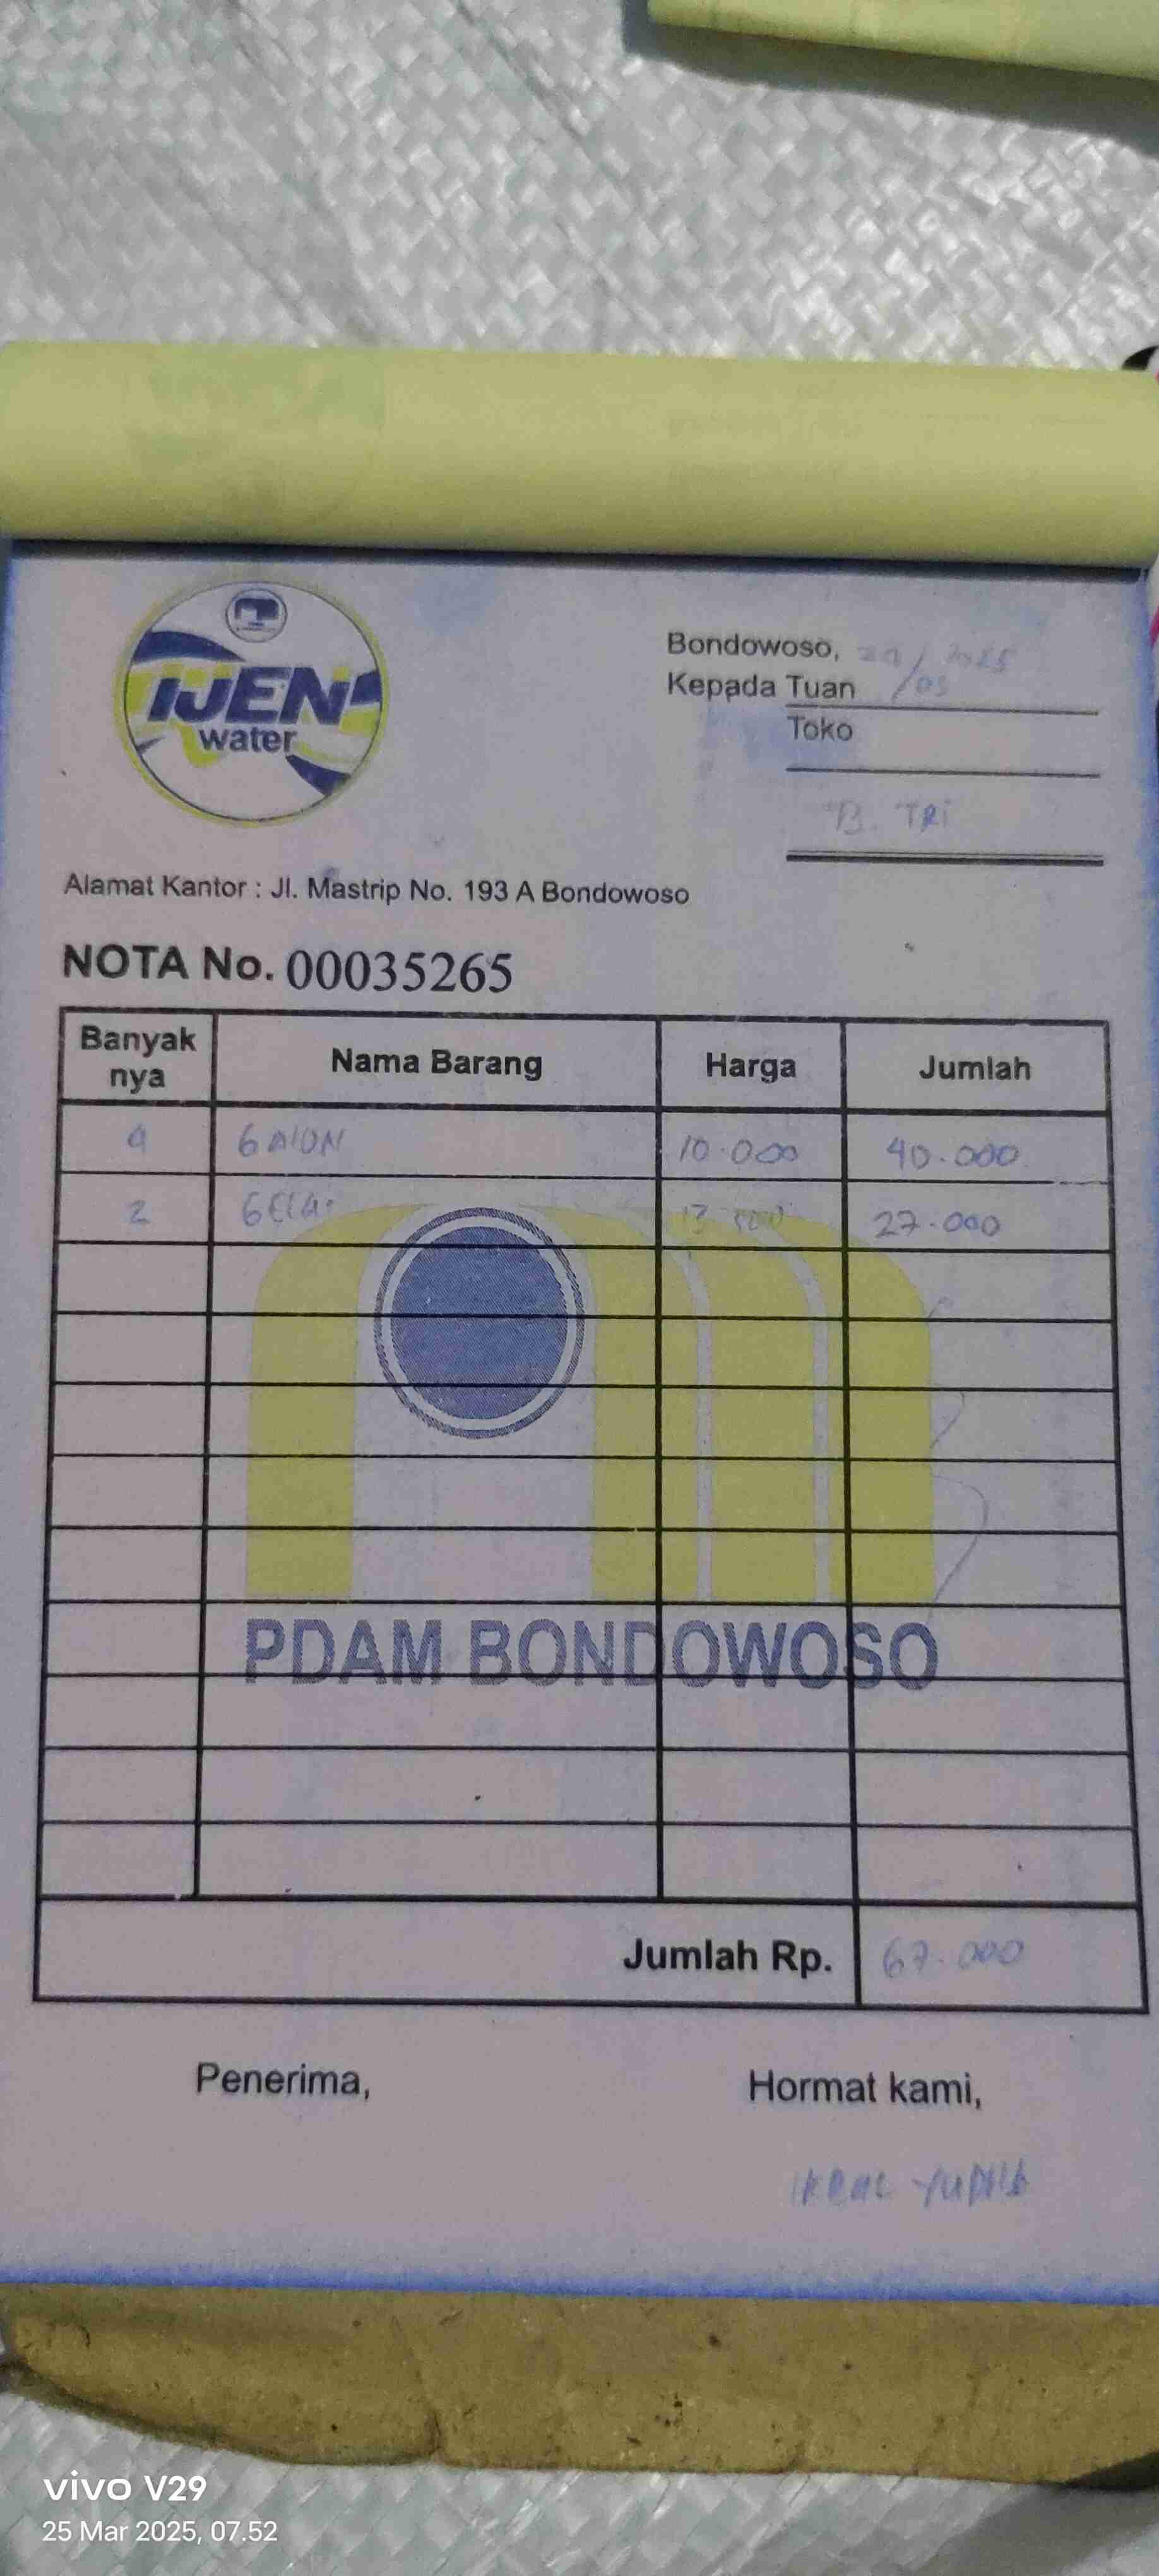 IJEN
water
Bondowoso, /2025
Kepada Tuan /03
Toko
B. TRI
Alamat Kantor : Jl. Mastrip No. 193 A Bondowoso
NOTA No. 00035265
Banyak nya Nama Barang Harga Jumlah
4 GAlON 10.000 40.000
2 GElAS 13.500 27.000
PDAM BONDOWOSO
Jumlah Rp. 67.000
Penerima, Hormat kami,
vivo V29
25 Mar 2025, 07.52